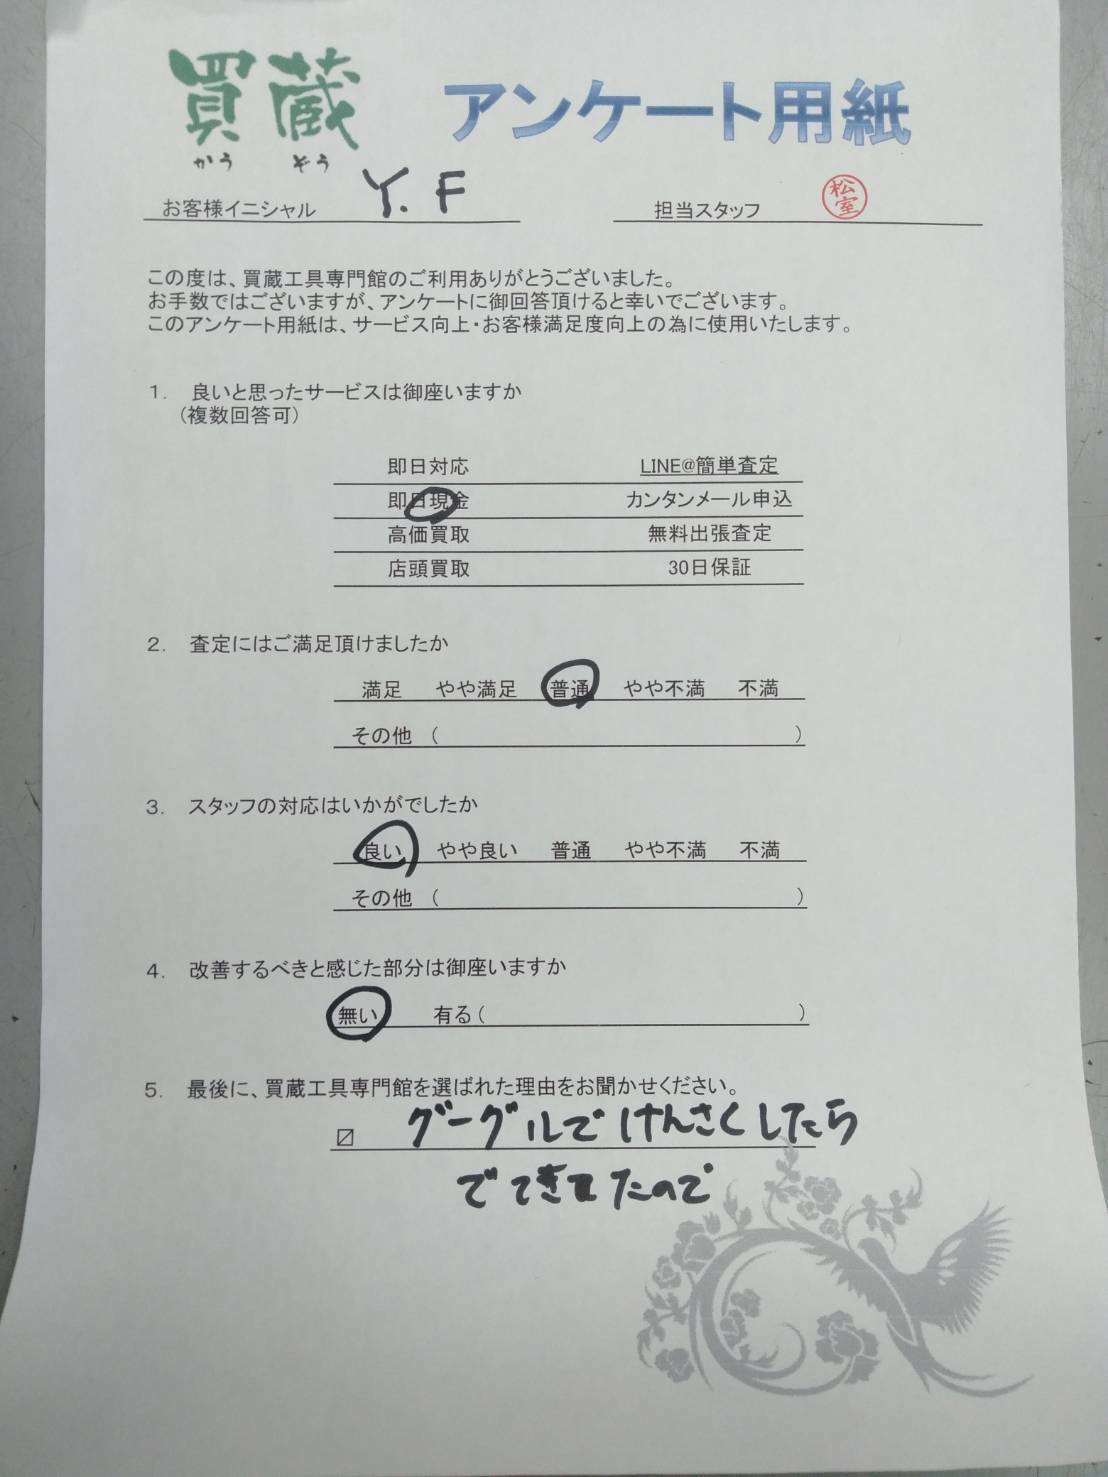 買蔵 アンケート用紙
かう ぞう
お客様イニシャル Y.F 担当スタッフ 松室
この度は、買蔵工具専門館のご利用ありがとうございました。
お手数ではございますが、アンケートに御回答頂けると幸いでございます。
このアンケート用紙は、サービス向上・お客様満足度向上の為に使用いたします。
1. 良いと思ったサービスは御座いますか
(複数回答可)
即日対応 LINE@簡単査定
即日現金 カンタンメール申込
高価買取 無料出張査定
店頭買取 30日保証
2. 査定にはご満足頂けましたか
満足 やや満足 普通 やや不満 不満
その他 ( )
3. スタッフの対応はいかがでしたか
良い やや良い 普通 やや不満 不満
その他 ( )
4. 改善するべきと感じた部分は御座いますか
無い 有る( )
5. 最後に、買蔵工具専門館を選ばれた理由をお聞かせください。
グーグルでけんさくしたら
でてきてたので